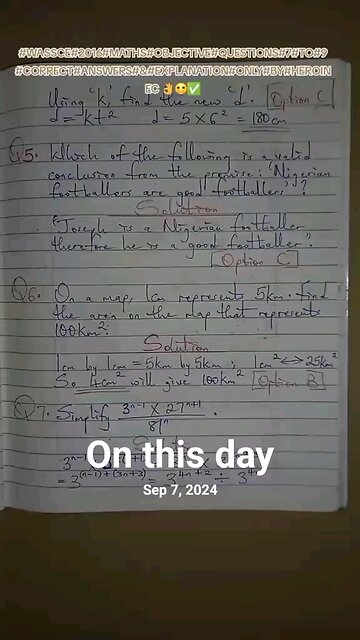 #WASSCE#2016#MATHS#OBJECTIVE#QUESTIONS#7#TO#9
#CORRECT#ANSWERS#&#EXPLANATION#ONLY#BY#HEROIN
EC ✌😍✅
Using 'k', find the new 'd'. Option C
d = kt² d = 5 × 6² = 180cm
Q5. Which of the following is a valid
conclusion from the premise: 'Nigerian
footballers are good footballers'?
Solution
"Joseph is a Nigerian footballer
therefore he is a good footballer".
Option C
Q6. On a map, 1cm represents 5km. Find
the area on the map that represents
100km².
Solution
1cm by 1cm = 5km by 5km; 1cm² ↔ 25km²
So 4cm² will give 100km² Option B
Q7. Simplify 3ⁿ⁻¹ × 27ⁿ⁺¹ / 81ⁿ.
On this day
Sep 7, 2024
= 3⁽ⁿ⁻¹⁾⁺⁽³ⁿ⁺³⁾ = 3⁴ⁿ⁺² ÷ 3⁴